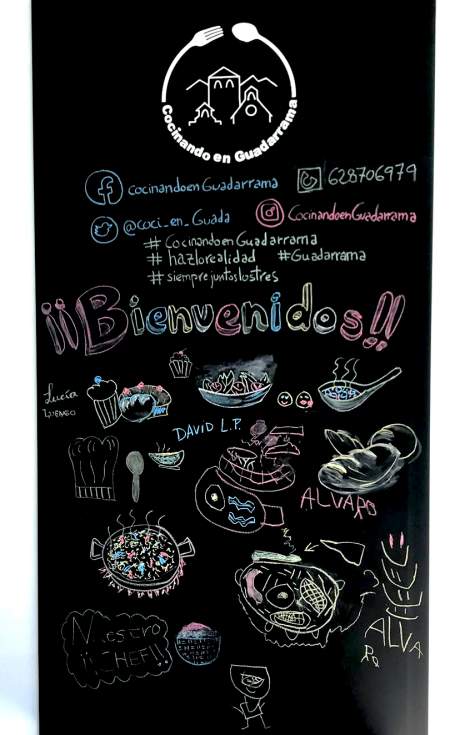 Cocinando en Guadarrama
Cocinandoen Guadarrama
628706979
@coci_en_Guada
CocinandoenGuadarrama
# CocinandoenGuadarrama
# hazlorealidad #Guadarrama
# siemprejuntoslostres
¡¡Bienvenidos!!
Lucía
DAVID L.P.
ALVARO
ALVA
RO
Maestro
CHEF!!